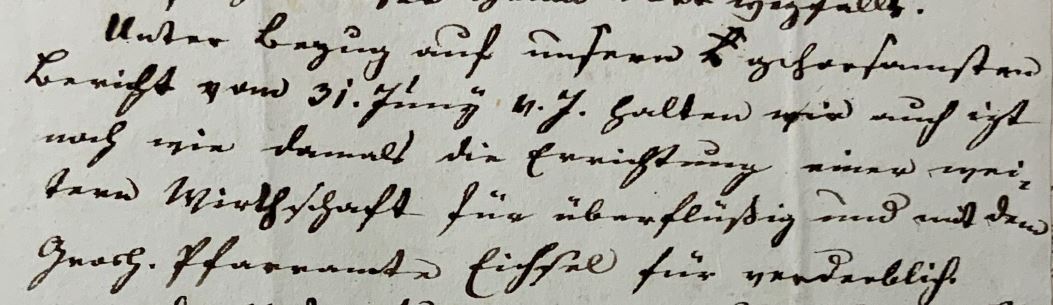 wegfällt.
Unter Bezug auf unsern gehorsamsten
Bericht vom 31. Juny v. J. halten wir auch izt
noch wie damals die Errichtung einer wei-
tern Wirthschaft für überflüßig und mit dem
Grosh. Pfarramte Eichsel für verderblich.